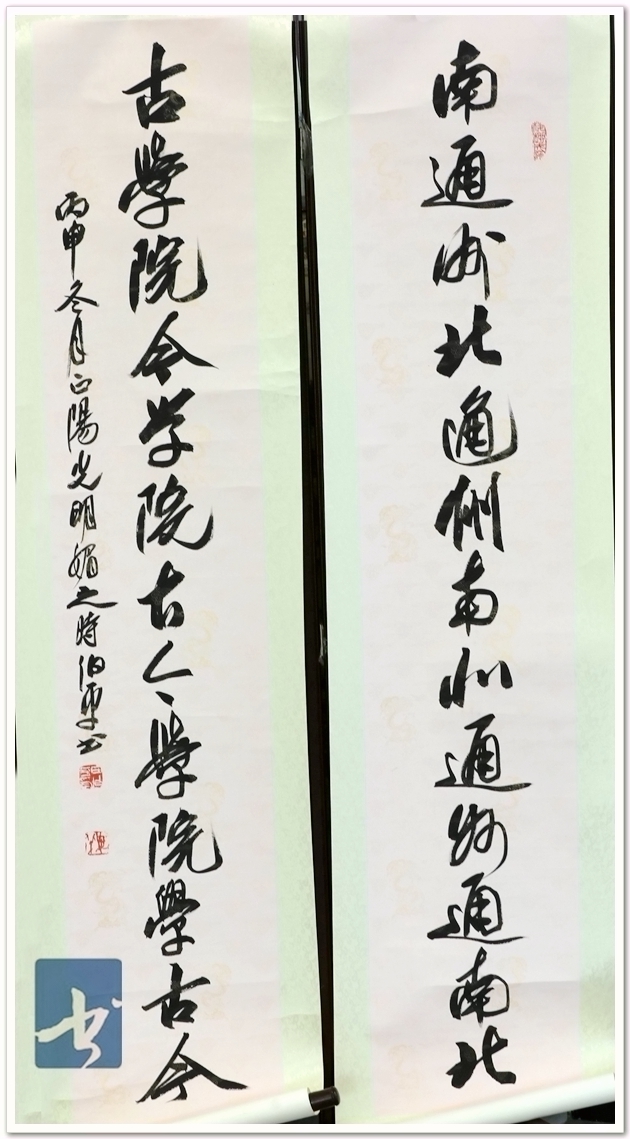 南通州北通州南北通州通南北
古學院今学院古今學院學古今
丙申冬月正陽光明媚之時伯书
书